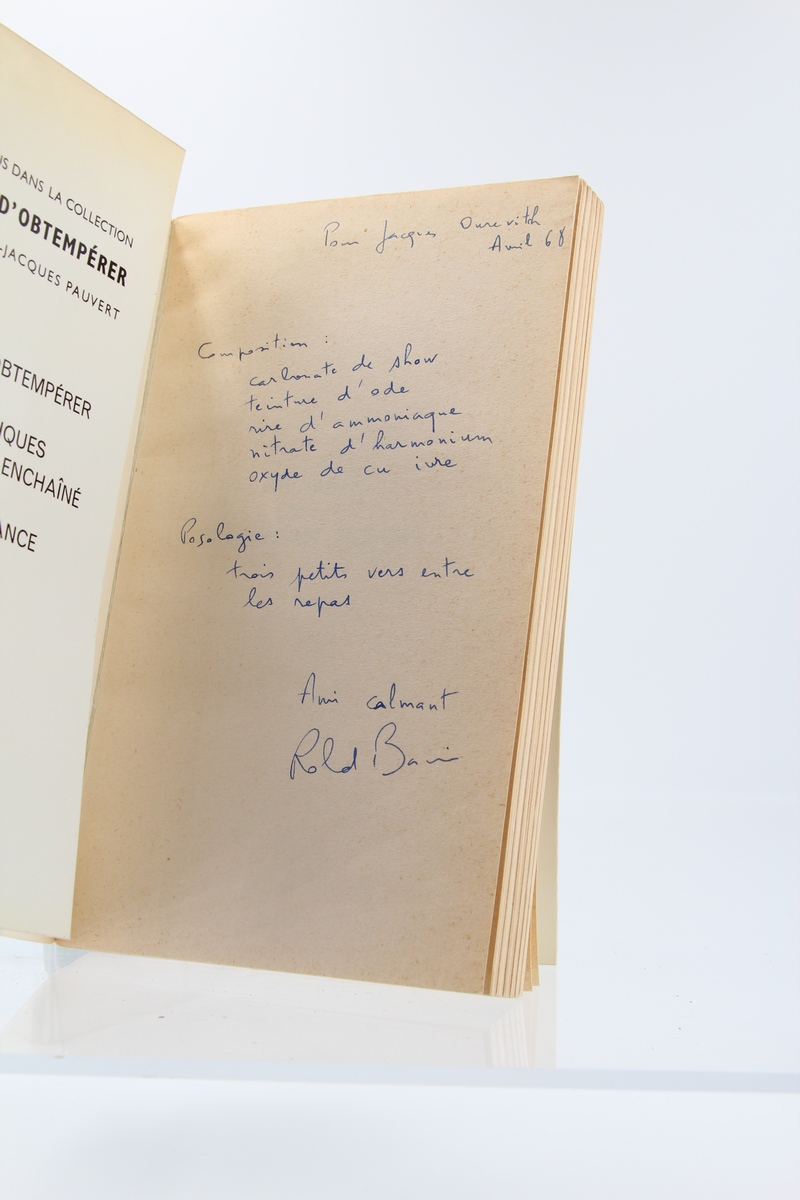 US DANS LA COLLECTION
D'OBTEMPÉRER
-JACQUES PAUVERT
OBTEMPÉRER
IQUES
ENCHAÎNÉ
ANCE
Pour Jacques Ourevitch
Avril 68
Composition :
carbonate de show
teinture d'ode
rire d'ammoniaque
nitrate d'harmonium
oxyde de cu ivre
Posologie :
trois petits vers entre
les repas
Ami calmant
Rold Bacri